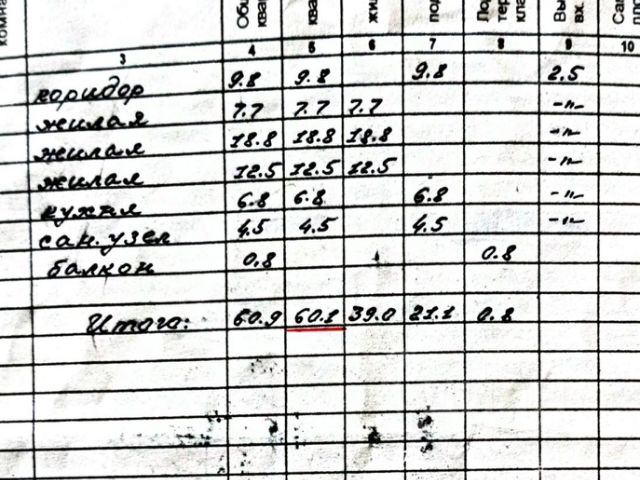 комна
Об
ква
ква
жи
по
Ло
тер
кла
Вы
вх.
Сам
пло
3 4 5 6 7 8 9 10
коридор 9.8 9.8 9.8 2.5
жилая 7.7 7.7 7.7 -"-
жилая 18.8 18.8 18.8 -"-
жилая 12.5 12.5 12.5 -"-
кухня 6.8 6.8 6.8 -"-
сан. узел 4.5 4.5 4.5 -"-
балкон 0.8 0.8
Итого: 60.9 60.1 39.0 21.1 0.8